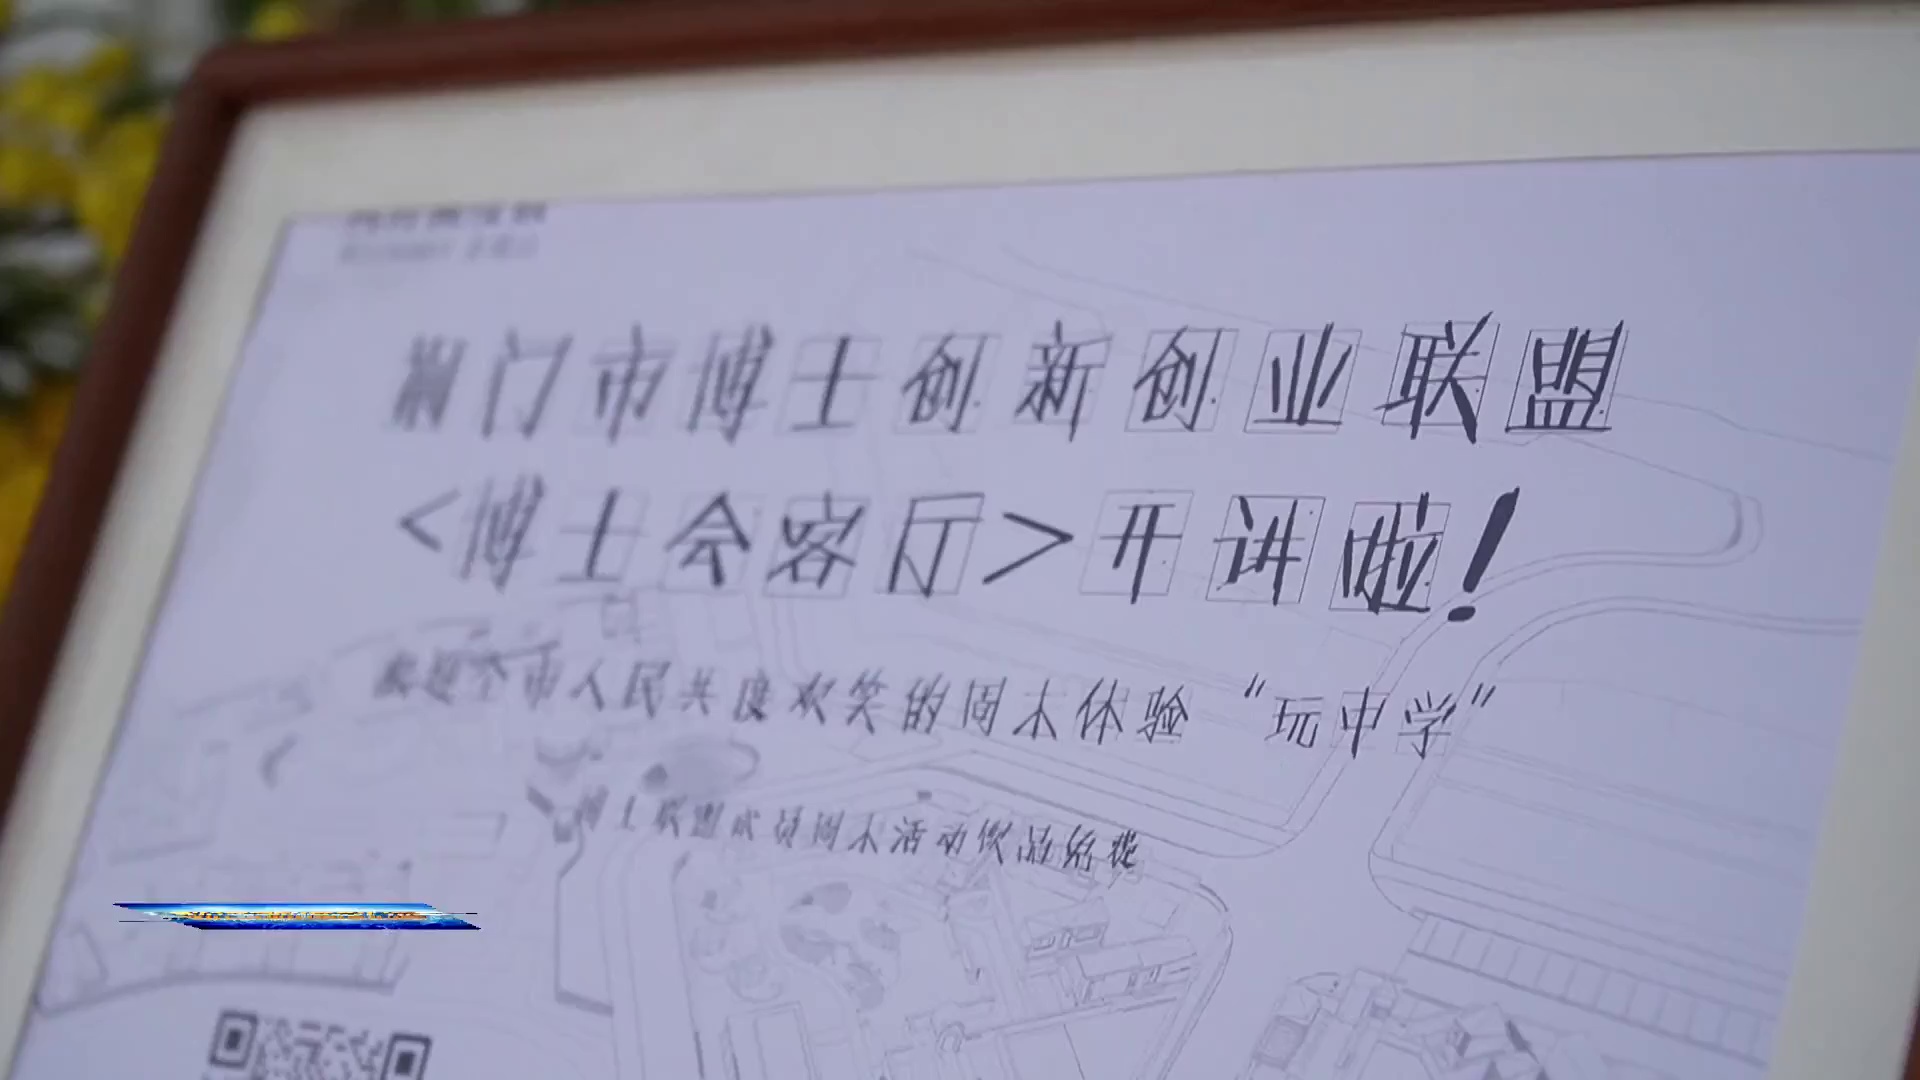 荆门市博士创新创业联盟
<博士会客厅>开讲啦!
欢迎全市人民共度欢笑的周末体验“玩中学”
博士联盟成员周末活动饮品免费